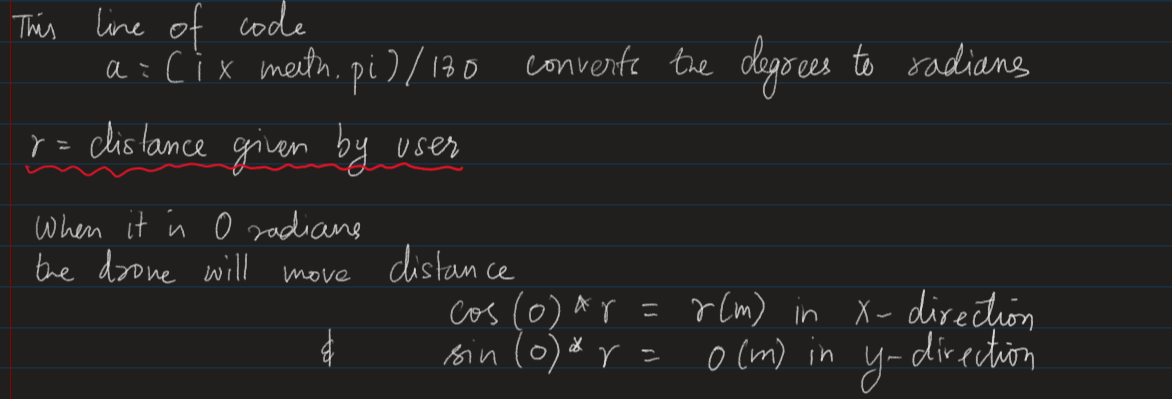 This line of code
a = (i x math.pi)/180 converts the degrees to radians
r = distance given by user
When it is 0 radians
the drone will move distance
cos (0) * r = r(m) in x-direction
& sin (0) * r = 0 (m) in y-direction